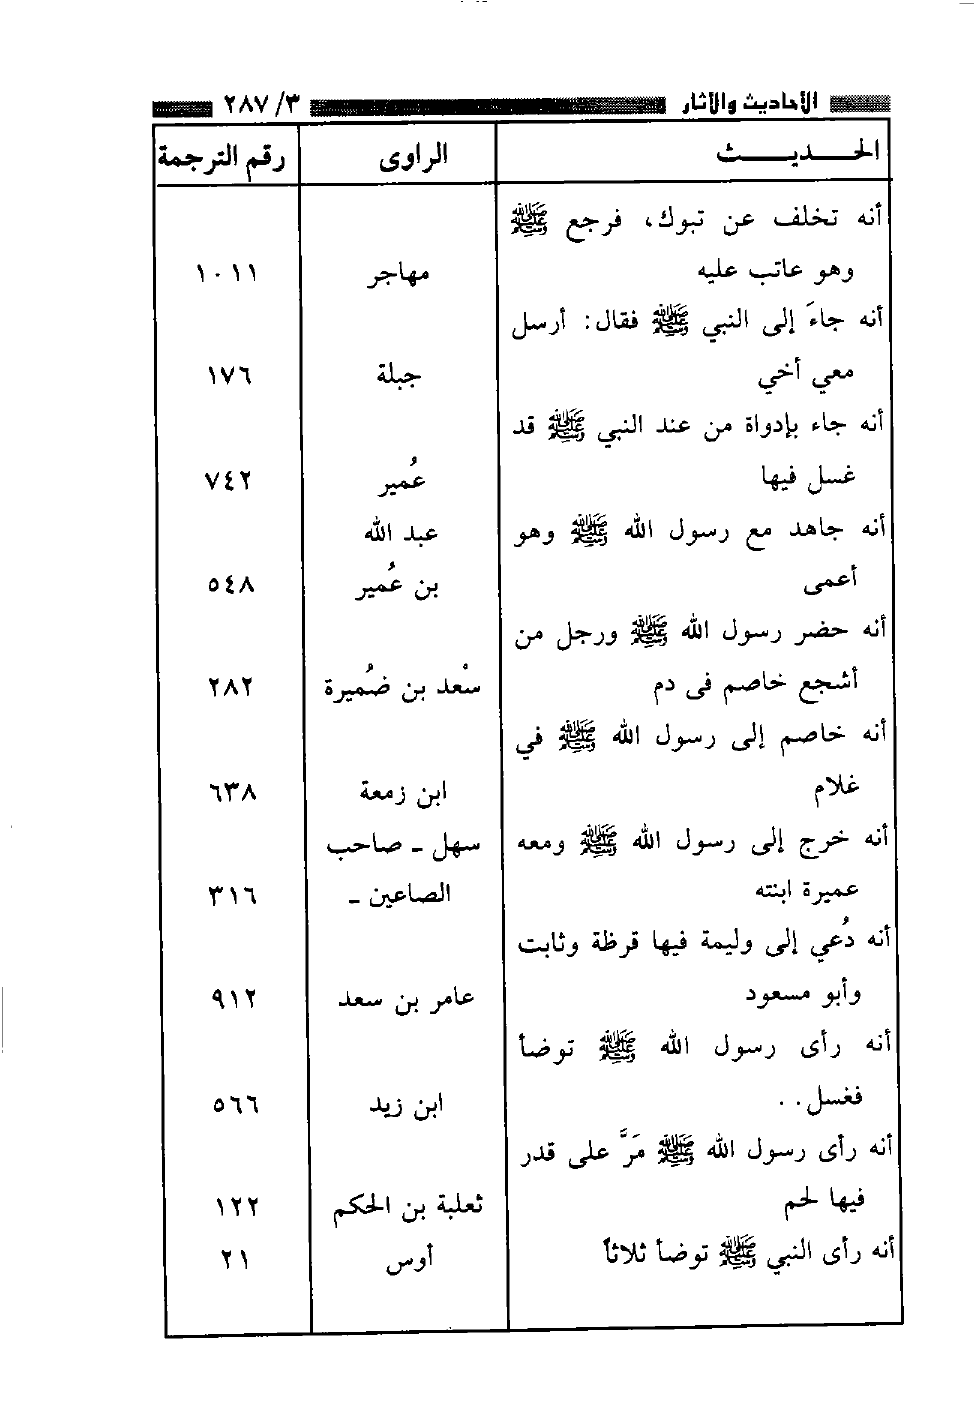 الأحاديث والآثار ٢٨٧/٣
الحـــديـــــث الراوى رقم الترجمة
أنه تخلف عن تبوك، فرجع ﷺ
وهو عاتب عليه مهاجر ١٠١١
أنه جاءَ إلى النبي ﷺ فقال: أرسل
معي أخي جبلة ١٧٦
أنه جاء بإدواة من عند النبي ﷺ قد
غسل فيها عُمير ٧٤٢
أنه جاهد مع رسول الله ﷺ وهو عبد الله
أعمى بن عُمير ٥٤٨
أنه حضر رسول الله ﷺ ورجل من
أشجع خاصم فى دم سعْد بن ضُميرة ٢٨٢
أنه خاصم إلى رسول الله ﷺ في
غلام ابن زمعة ٦٣٨
أنه خرج إلى رسول الله ﷺ ومعه سهل ـ صاحب
عميرة ابنته الصاعين ـ ٣١٦
أنه دُعي إلى وليمة فيها قرظة وثابت
وأبو مسعود عامر بن سعد ٩١٢
أنه رأى رسول الله ﷺ توضأ
فغسل.. ابن زيد ٥٦٦
أنه رأى رسول الله ﷺ مَرَّ على قدر
فيها لحم ثعلبة بن الحكم ١٢٢
أنه رأى النبي ﷺ توضأ ثلاثاً أوس ٢١